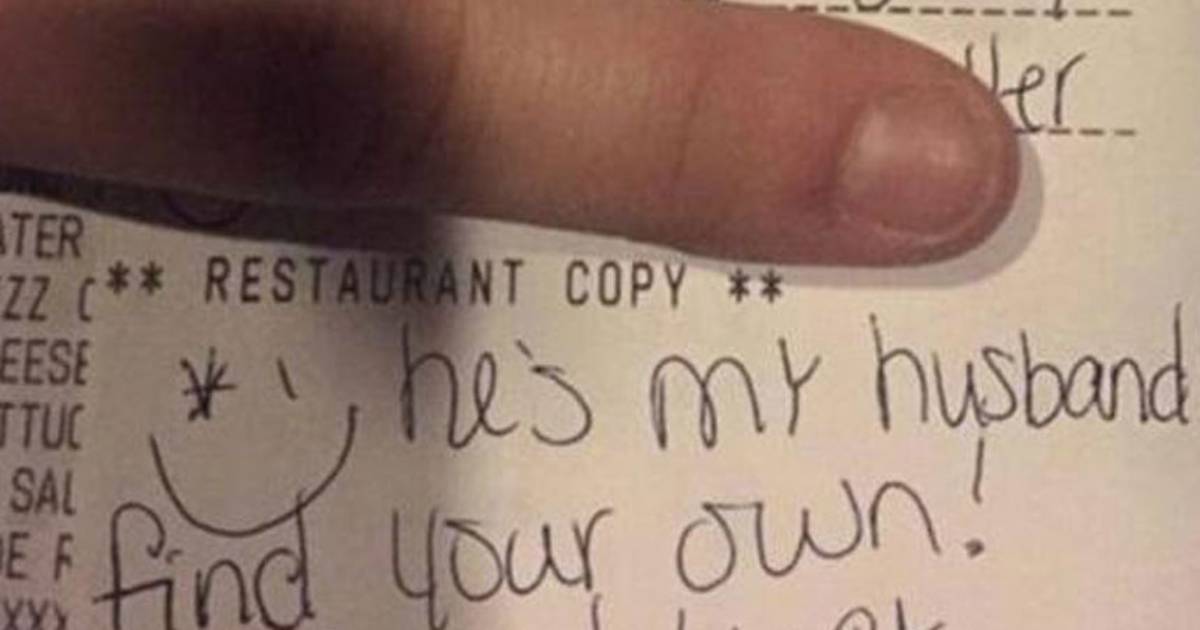 ATER
** RESTAURANT COPY **
ZZ C
EESE
he's my husband
TTUC
SAL
find your own!
DE F
XXX